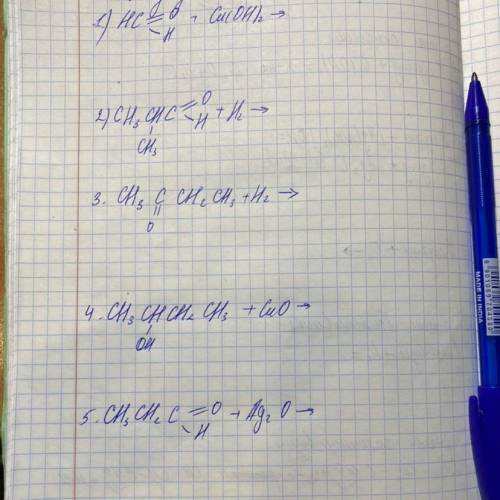 1) HC=O + Cu(OH)₂→
–H
2) CH₃ CHC=O + H₂→
–H
CH₃
3. CH₃ C CH₂CH₃ + H₂ →
||
O
4. CH₃ CHCH₂ CH₃ + CuO→
OH
5. CH₃CH₂ C=O + Ag₂O→
–H
MADE IN INDIA